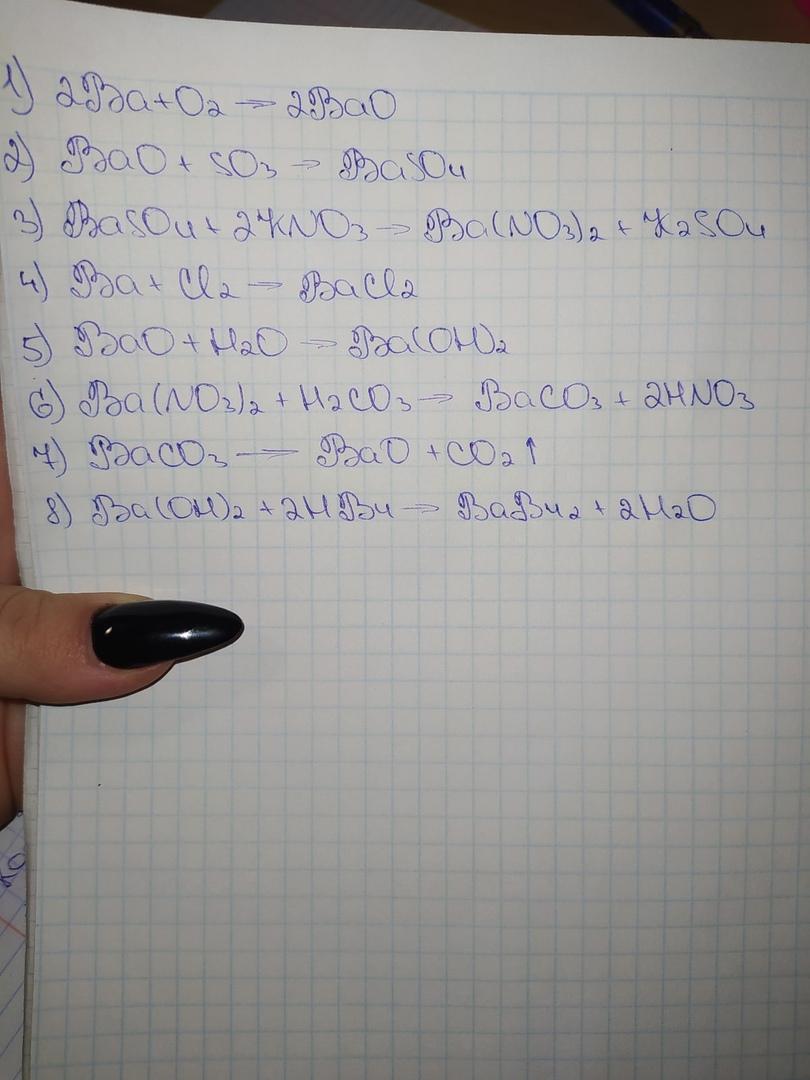 1) 2Ba+O2 → 2BaO
2) BaO + SO3 → BaSO4
3) BaSO4 + 2KNO3 → Ba(NO3)2 + K2SO4
4) Ba + Cl2 → BaCl2
5) BaO + H2O → Ba(OH)2
6) Ba(NO3)2 + H2CO3 → BaCO3 + 2HNO3
7) BaCO3 → BaO + CO2↑
8) Ba(OH)2 + 2HBr → BaBr2 + 2H2O